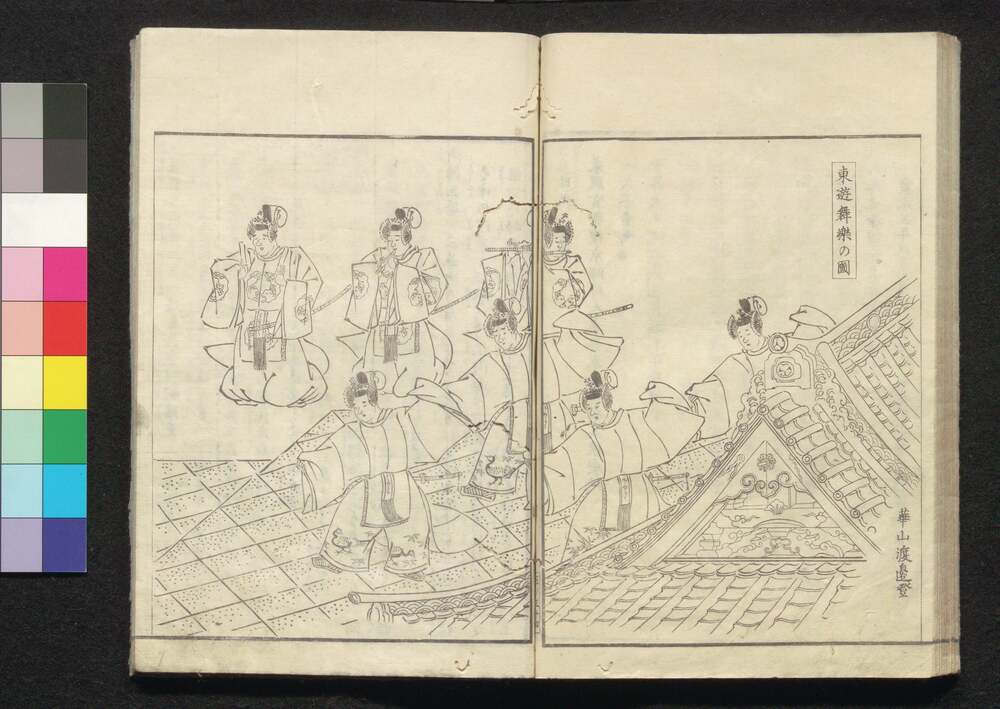 東遊舞樂の圖
華山渡邉登